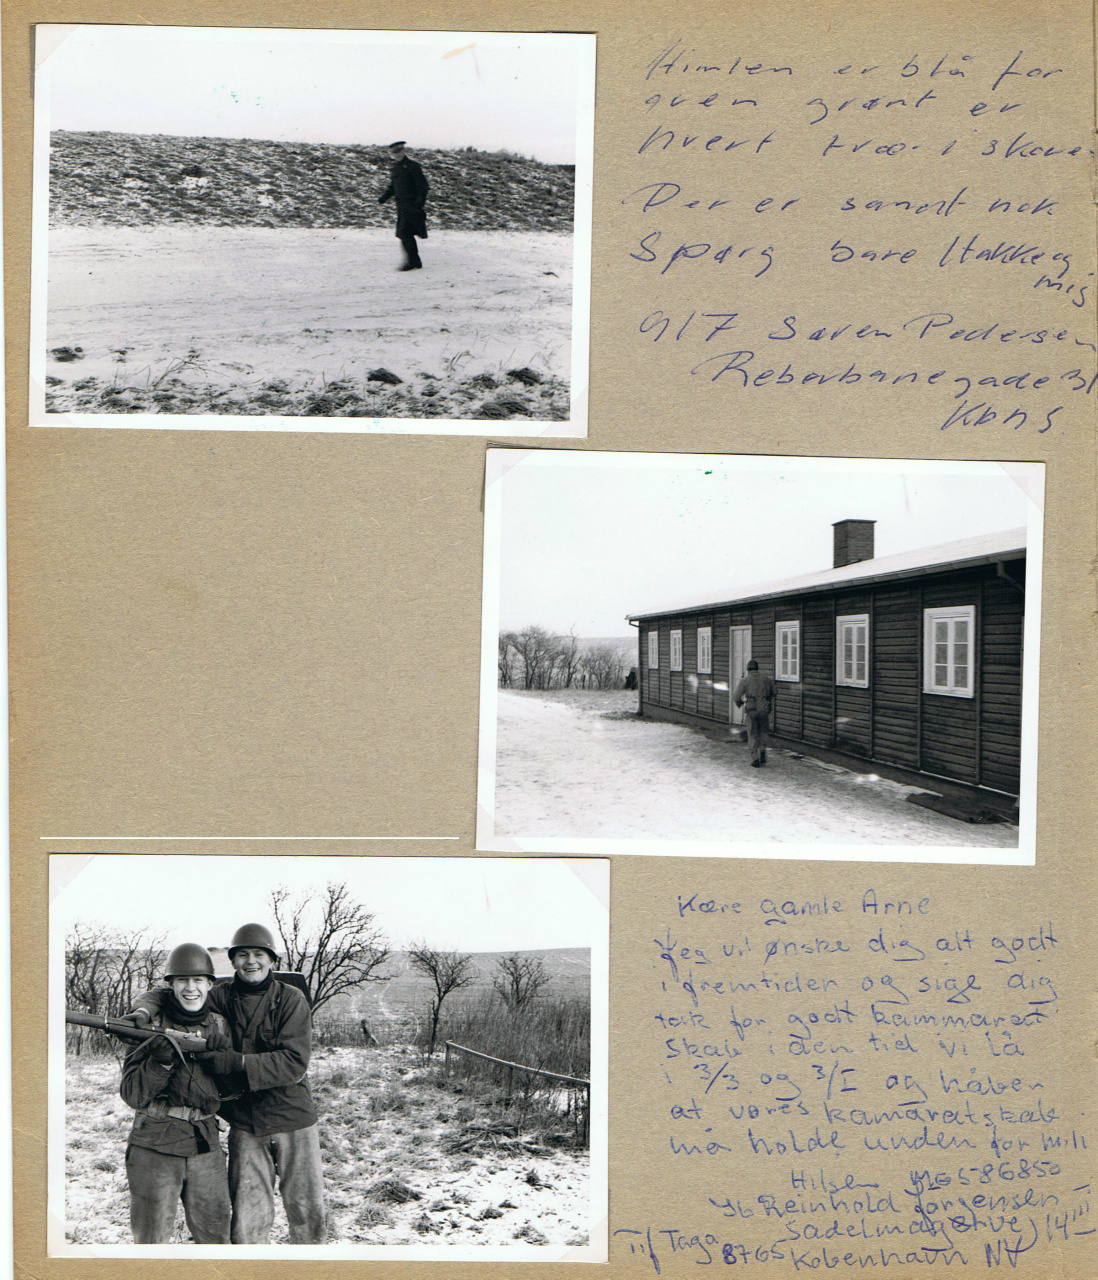 Himlen er blå for
oven grønt er
hvert træ i skove
Der er sandt nok
Spørg bare Hakke og
mig
917 Søren Pedersen
Reberbanegade 31
Kbh S
Kære gamle Arne
Jeg vil ønske dig alt godt
i fremtiden og sige dig
tak for godt kammarat
skab i den tid vi lå
i 3/3 og 3/I og håber
at vores kamaratskab
må holde unden for mili
Hilsen MG 586850
Ib Reinhold Jørgensen
Sadelmagerstue) 14 III
Tlf Taga 8765 København NV